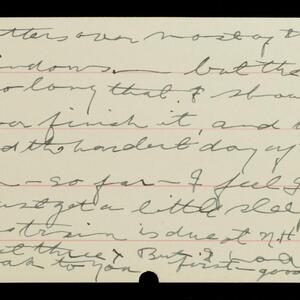 tters over most of t
indows — but the
so long that I shou
ver finish it, and t
d the hardest day of
— so far — I feel I
ust get a little slee
trision is due at N.H.
at three & But I
ak to you first — good